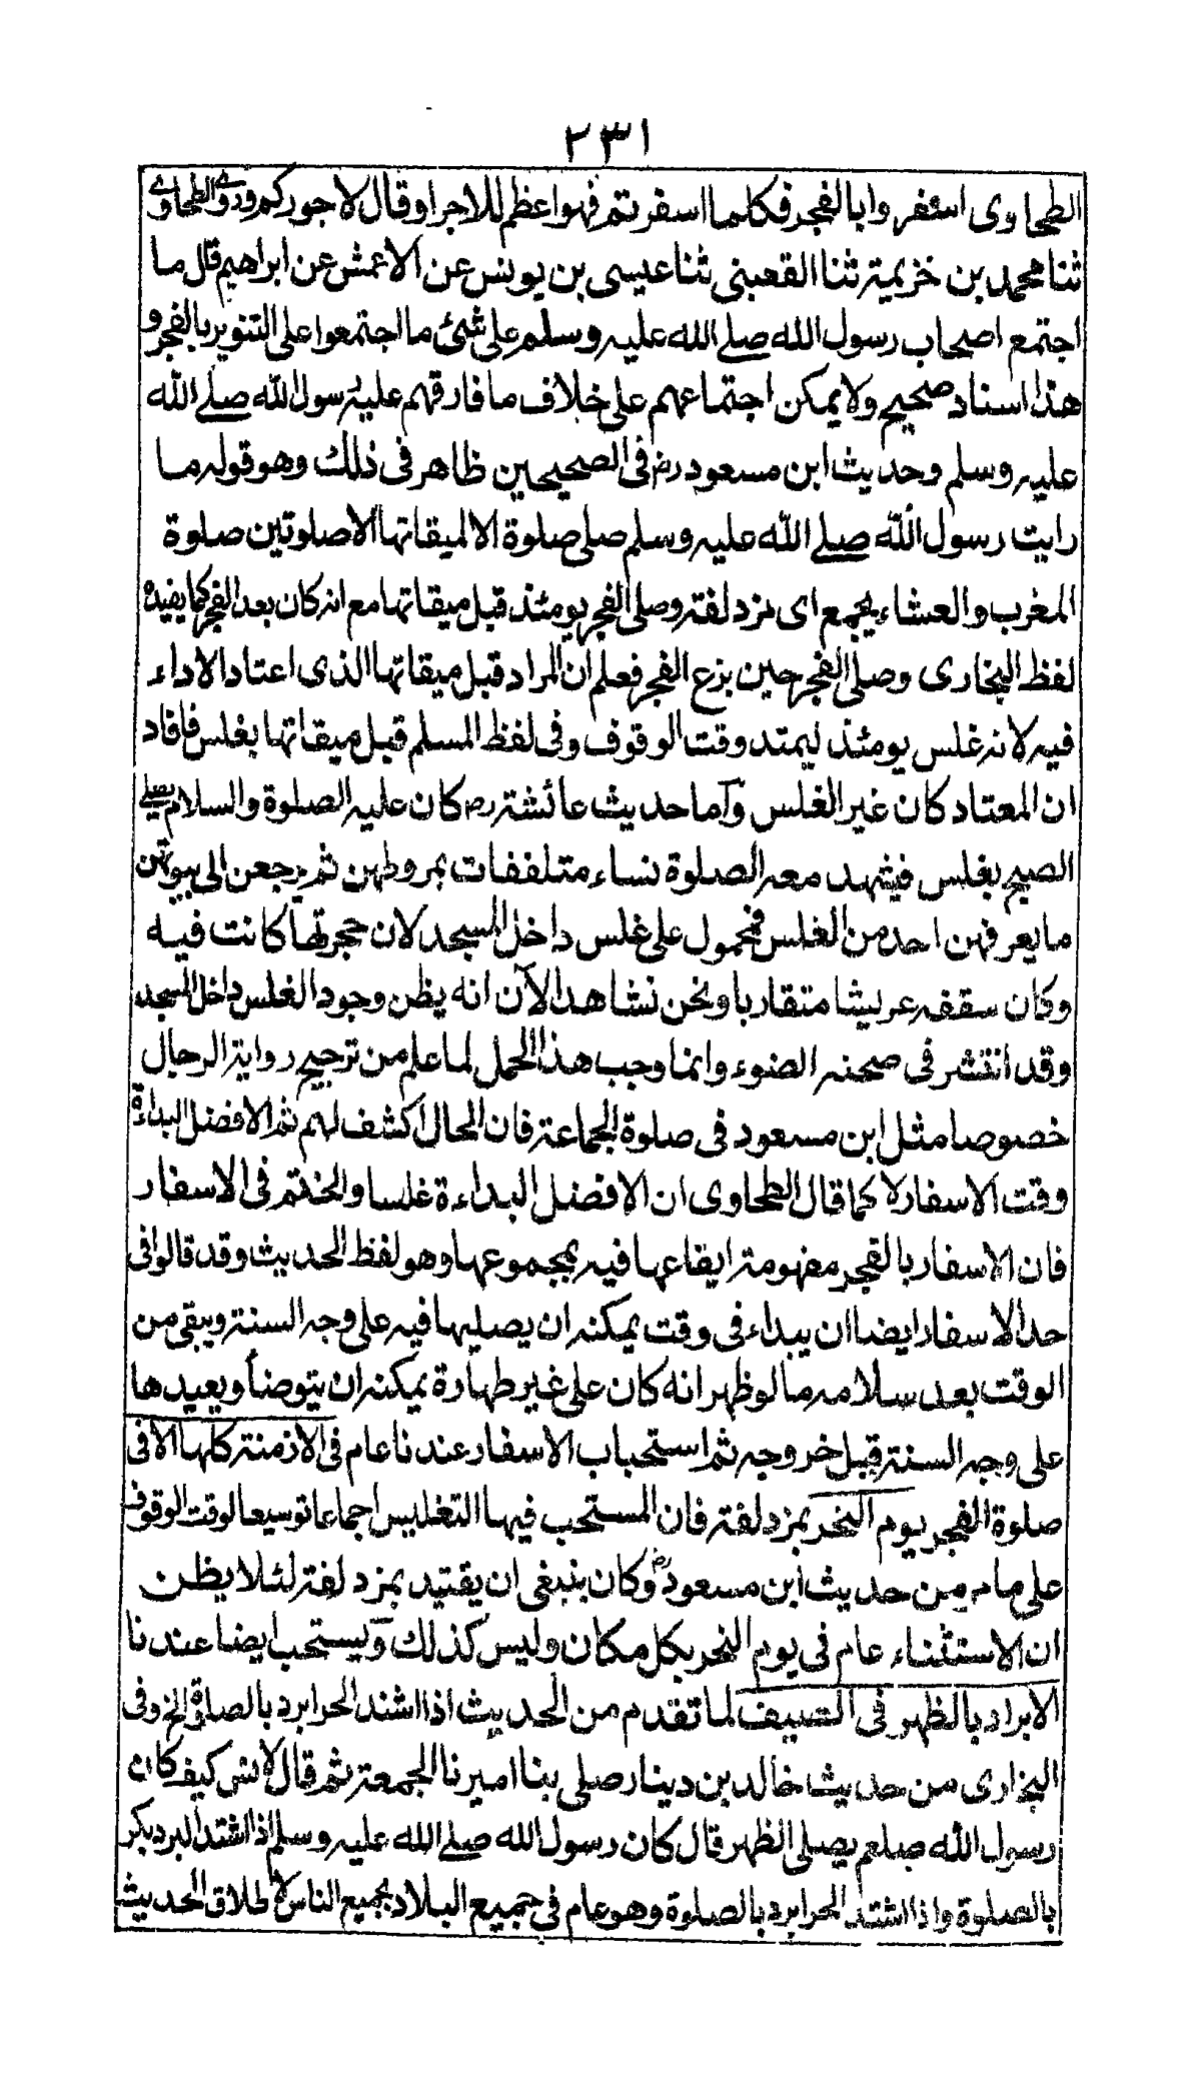 ٢٣١
الطحاوى اسفروا بالفجر فكلما اسفرتم فهو اعظم للاجر او قال لاجوركم وروى الطحاوى
ثنا محمد بن خزيمة ثنا القعبنى ثنا عيسى بن يونس عن الاعمش عن ابراهيم قال ما
اجتمع اصحاب رسول الله صلے الله عليه وسلم على شئ ما اجتمعوا على التنوير بالفجر و
هذا اسناد صحيح ولا يمكن اجتماعهم على خلاف ما فارقهم عليه رسول الله صلے الله
عليه وسلم وحديث ابن مسعود رض فى الصحيحين ظاهر فى ذلك وهو قوله ما
رايت رسول الله صلے الله عليه وسلم صلى صلوة الا لميقاتها الا صلوتين صلوة
المغرب والعشاء بجمع اى بمزدلفة وصلى الفجر يومئذ قبل ميقاتها مع انه كان بعد الفجر كما يفيده
لفظ البخارى وصلى الفجر حين بزغ الفجر فعلم ان المراد قبل ميقاتها الذى اعتاد الاداء
فيه لانه غلس يومئذ ليمتد وقت الوقوف وفى لفظ المسلم قبل ميقاتها بغلس فافاد
ان المعتاد كان غير الغلس وآما حديث عائشة رض كان عليه الصلوة والسلام يصلے
الصبح بغلس فيشهد معه الصلوة نساء متلففات بمروطهن ثم يرجعن الى بيوتهن
ما يعرفهن احد من الغلس فمحمول على غلس داخل المسجد لان حجرتها كانت فيه
وكان سقفه عريشا متقاربا ونحن نشاهد الآن انه يظن وجود الغلس داخل المسجد
وقد انتشر فى صحنه الضوء وانما وجب هذا الحمل لما علم من ترجيح رواية الرجال
خصوصا مثل ابن مسعود فى صلوة الجماعة فان الحال اكشف لهم ثم الافضل البداءة
وقت الاسفار لا كما قال الطحاوى ان الافضل البداءة غلسا والختم فى الاسفار
فان الاسفار بالفجر مفهومة ايقاعها فيه بمجموعها وهو لفظ الحديث وقد قالوا فى
حد الاسفار ايضا ان يبداء فى وقت يمكنه ان يصليها فيه على وجه السنة ويبقى من
الوقت بعد سلامه ما لو ظهر انه كان على غير طهارة يمكنه ان يتوضأ ويعيدها
على وجه السنة قبل خروجه ثم استحباب الاسفار عندنا عام فى الازمنة كلها الا فى
صلوة الفجر يوم النحر بمزدلفة فان المستحب فيها التغليس اجماعا توسيعا لوقت الوقوف
على ما مر من حديث ابن مسعود رض وكان ينبغى ان يقتيد بمزدلفة لئلا يظن
ان الاستثناء عام فى يوم النحر بكل مكان وليس كذلك وَيستحب ايضا عندنا
الابراد بالظهر فى الصيف لما تقدم من الحديث اذا اشتد الحر ابرد بالصلوة الخ وفى
البخارى من حديث خالد بن دينار صلى بنا اميرنا الجمعة ثم قال لانس كيف كان
رسول الله صلعم يصلى الظهر قال كان رسول الله صلے الله عليه وسلم اذا اشتد البرد بكر
بالصلوة واذا اشتد الحر ابرد بالصلوة وهو عام فى جميع البلاد بجميع الناس لاطلاق الحديث